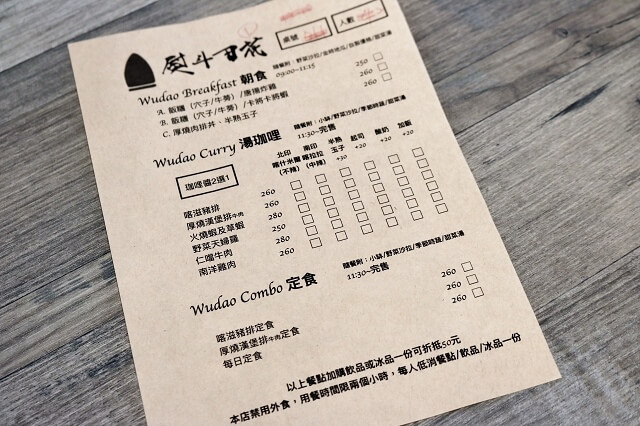 熨斗目花
桌號
人數
Wudao Breakfast 朝食
隨餐附：野菜沙拉/金時地瓜/自製優格/甜菜湯
09:00~11:15
A. 飯糰（穴子/牛蒡）/唐揚炸雞 250
B. 飯糰（穴子/牛蒡）/卡將卡將蝦 260
C. 厚燒肉排丼、半熟玉子 260
Wudao Curry 湯珈哩
隨餐附：小缽/野菜沙拉/季節時蔬/甜菜湯
11:30~完售
珈哩醬2選1
北印 喀什米爾 (不辣)
南印 喀拉拉 (中辣)
半熟 玉子 +30
起司 +20
酸奶 +20
加飯 +20
喀滋豬排 260
厚燒漢堡排牛肉 260
火燒蝦及草蝦 280
野菜天婦羅 250
仁當牛肉 280
南洋雞肉 260
Wudao Combo 定食
隨餐附：小缽/野菜沙拉/季節時蔬/甜菜湯
11:30~完售
喀滋豬排定食 260
厚燒漢堡排牛肉定食 260
每日定食 260
以上餐點加購飲品或冰品一份可折抵50元
本店禁用外食，用餐時間限兩個小時，每人低消餐點/飲品/冰品一份